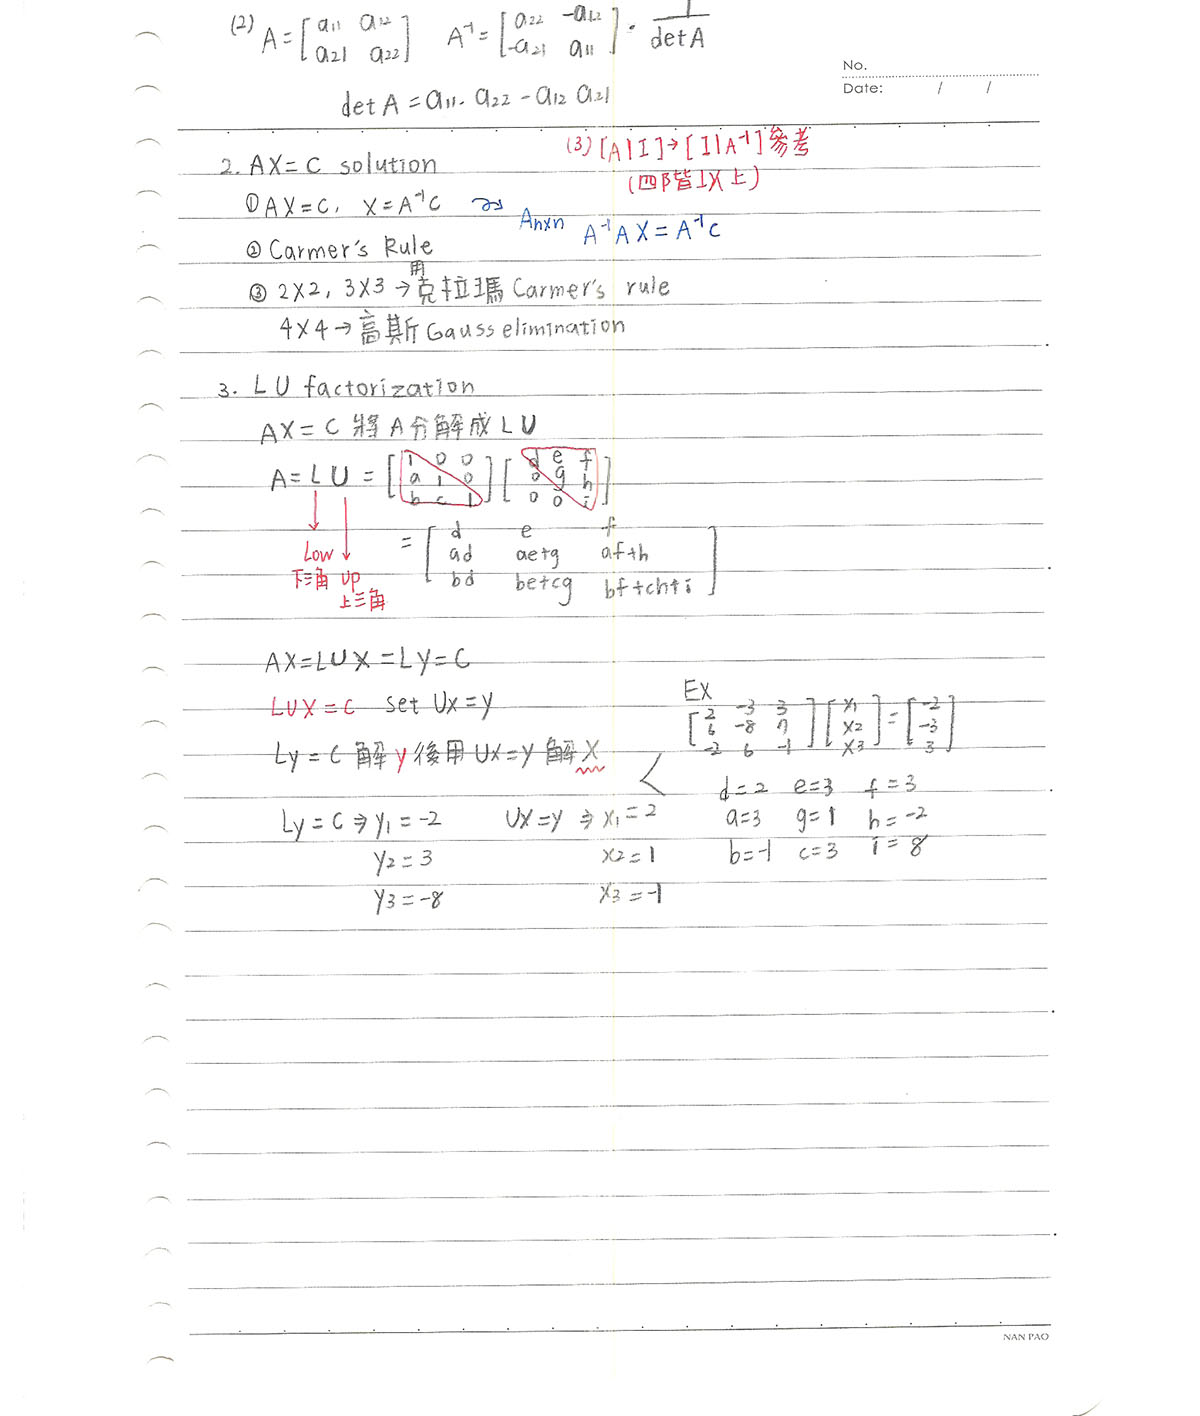 (2) A = [a11 a12 A⁻¹ = [a22 -a12 · 1
a21 a22] -a21 a11] detA
No.
Date: / /
det A = a11. a22 - a12 a21
(3) [A|I]→[I|A⁻¹] 參考
(四階以上)
2. AX = C solution
① AX = C, X = A⁻¹C Anxn A⁻¹AX = A⁻¹C
② Carmer's Rule
用
③ 2X2, 3X3 → 克拉瑪 Carmer's rule
4X4 → 高斯 Gauss elimination
3. LU factorization
AX = C 將 A 分解成 LU
A = LU = [1 0 0 [d e f
a 1 0 0 g h
b c 1] 0 0 i]
= [d e f
ad ae+g af+h
bd be+cg bf+ch+i]
Low
下三角 up
上三角
AX = LUX = Ly = C
LUX = C set Ux = y
Ly = C 解 y 後用 Ux = y 解 X
Ex
[2 -3 3 [x1 = [-2
6 -8 7 x2 -3
-2 6 -1] x3] 3]
d = 2 e = 3 f = 3
a = 3 g = 1 h = -2
b = -1 c = 3 i = 8
Ly = C ⇒ y1 = -2 Ux = y ⇒ x1 = 2
y2 = 3 x2 = 1
y3 = -8 x3 = -1
NAN PAO